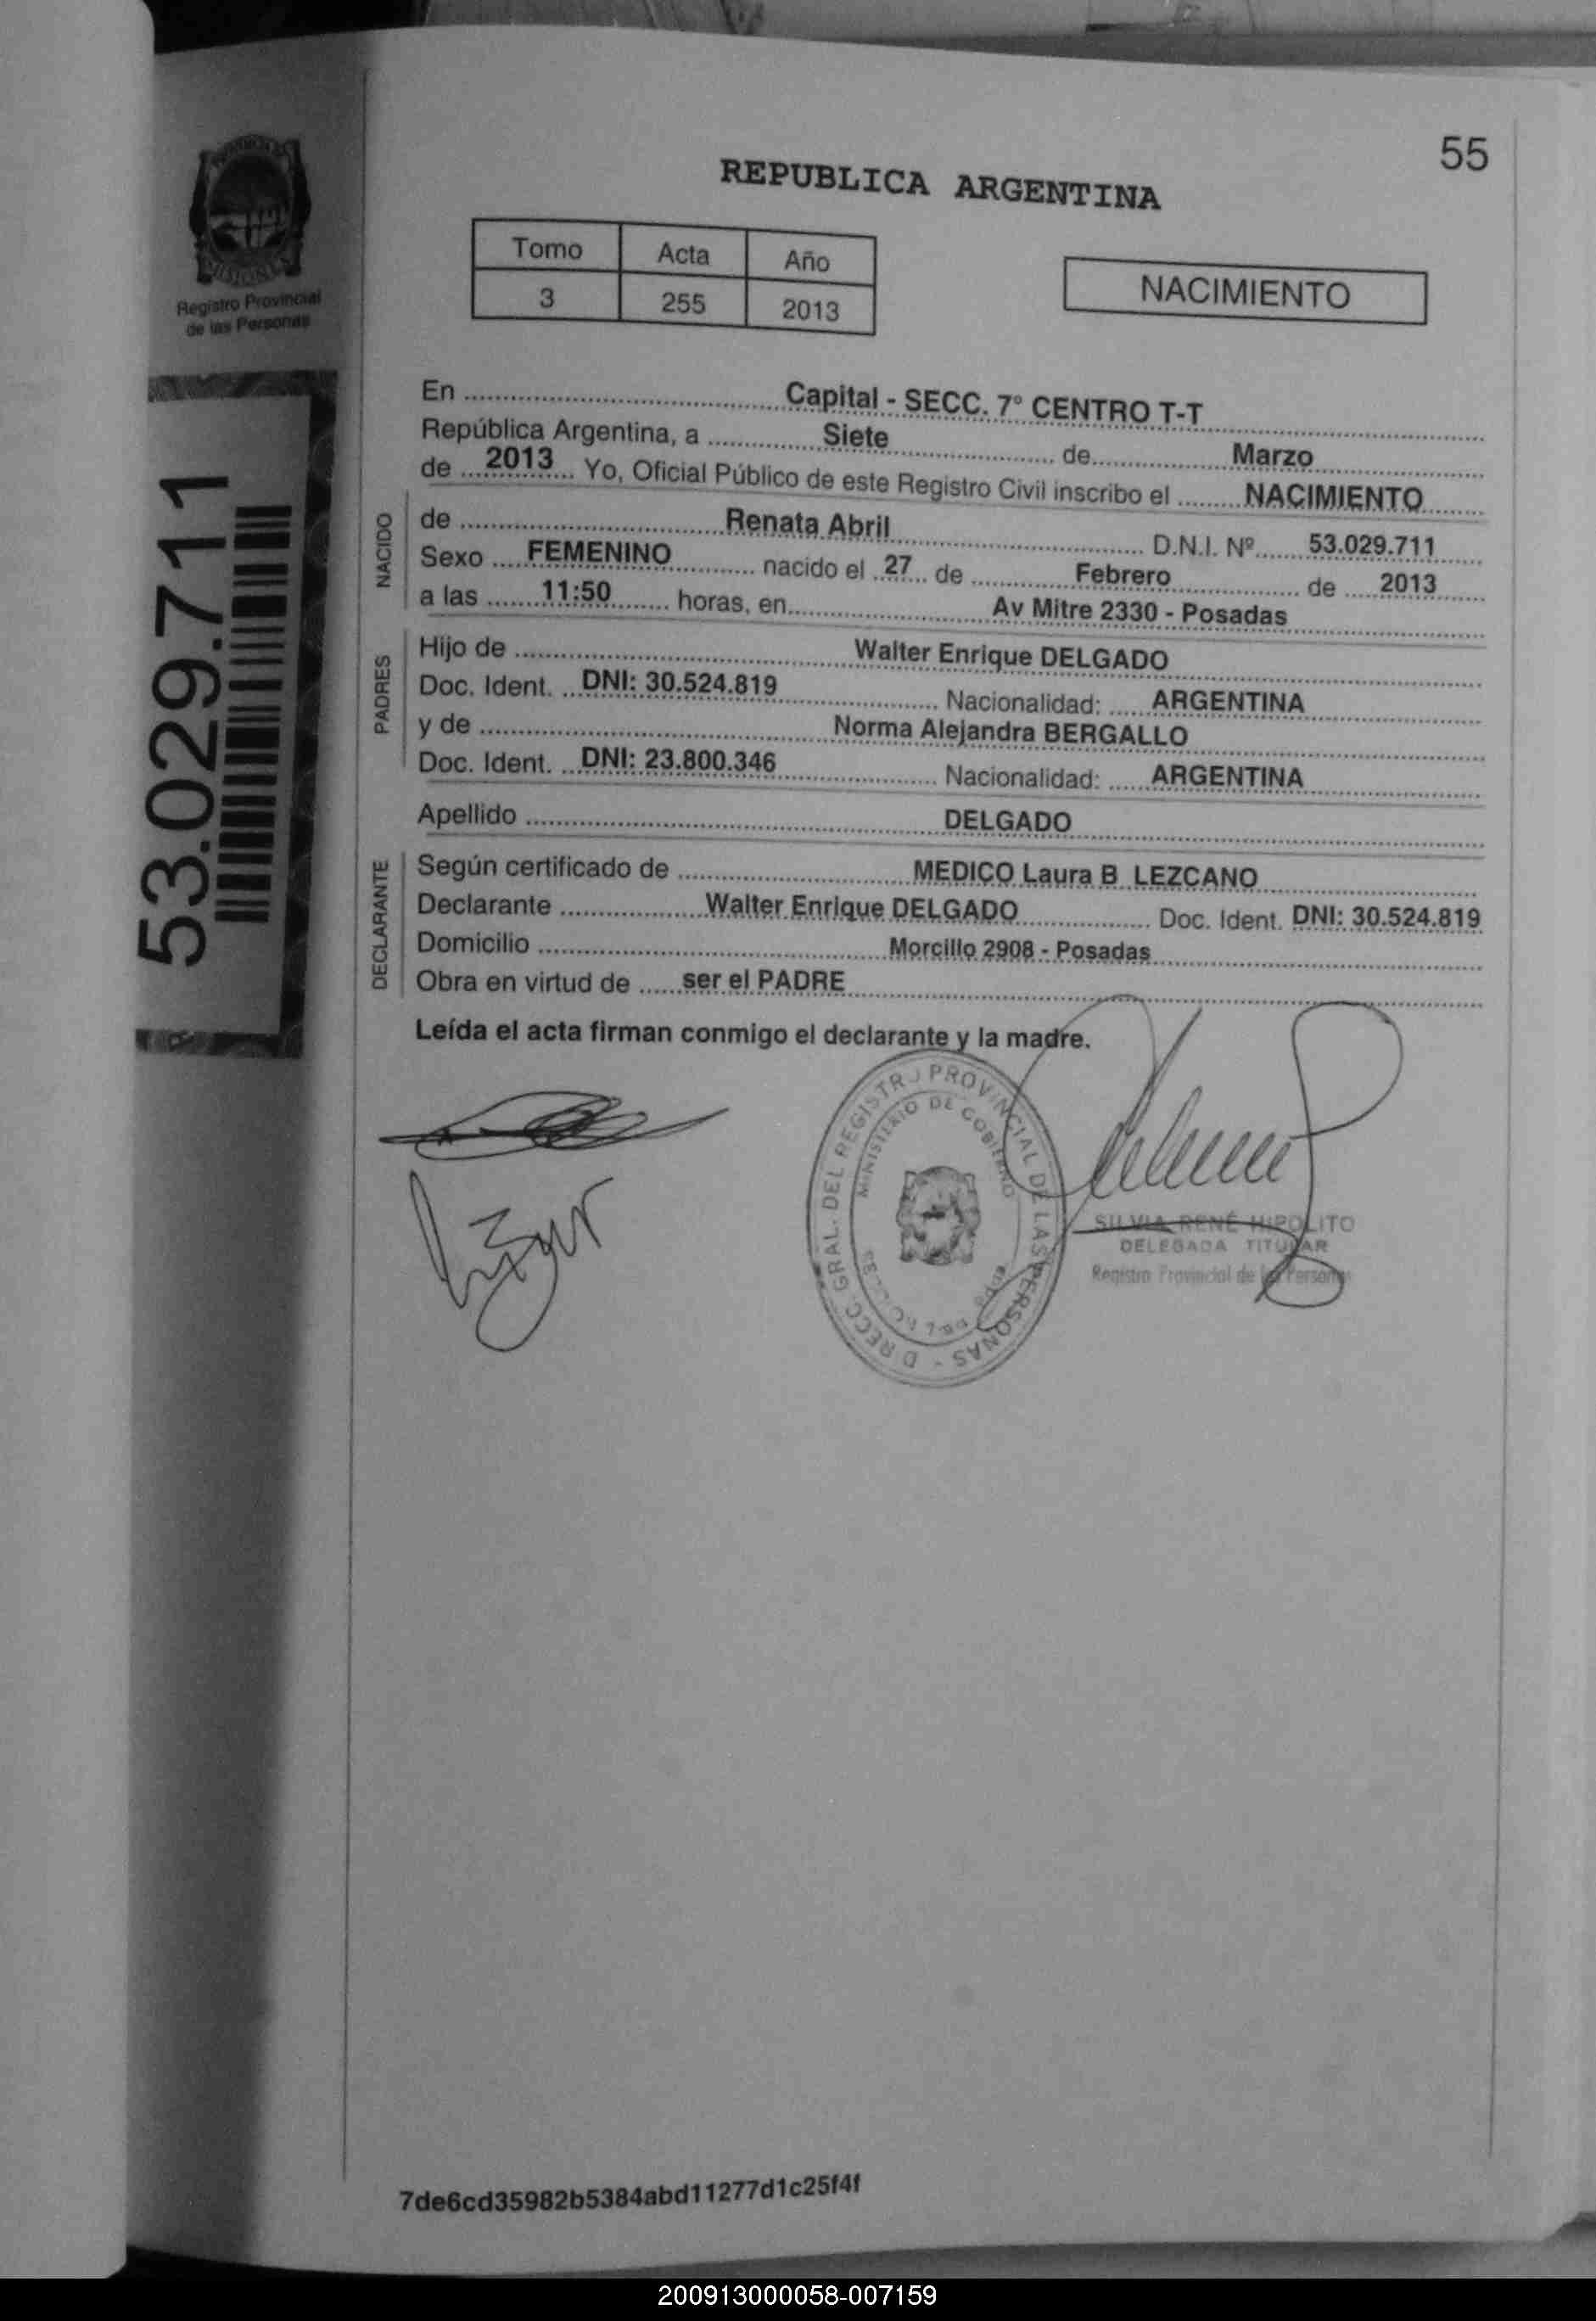 55
REPUBLICA ARGENTINA
Tomo Acta Año
3 255 2013
NACIMIENTO
PROVINCIA DE
MISIONES
Registro Provincial
de las Personas
53.029.711
En Capital - SECC. 7° CENTRO T-T
República Argentina, a Siete de Marzo
de 2013 Yo, Oficial Público de este Registro Civil inscribo el NACIMIENTO
NACIDO
de Renata Abril D.N.I. Nº 53.029.711
Sexo FEMENINO nacido el 27 de Febrero de 2013
a las 11:50 horas, en Av Mitre 2330 - Posadas
PADRES
Hijo de Walter Enrique DELGADO
Doc. Ident. DNI: 30.524.819 Nacionalidad: ARGENTINA
y de Norma Alejandra BERGALLO
Doc. Ident. DNI: 23.800.346 Nacionalidad: ARGENTINA
Apellido DELGADO
DECLARANTE
Según certificado de MEDICO Laura B LEZCANO
Declarante Walter Enrique DELGADO Doc. Ident. DNI: 30.524.819
Domicilio Morcillo 2908 - Posadas
Obra en virtud de ser el PADRE
Leída el acta firman conmigo el declarante y la madre.
DIRECC. GRAL. DEL REGISTRO PROVINCIAL DE LAS PERSONAS -
MINISTERIO DE GOBIERNO
SILVIA RENÉ HIPOLITO
DELEGADA TITULAR
Registro Provincial de las Personas
7de6cd35982b5384abd11277d1c25f4f
200913000058-007159